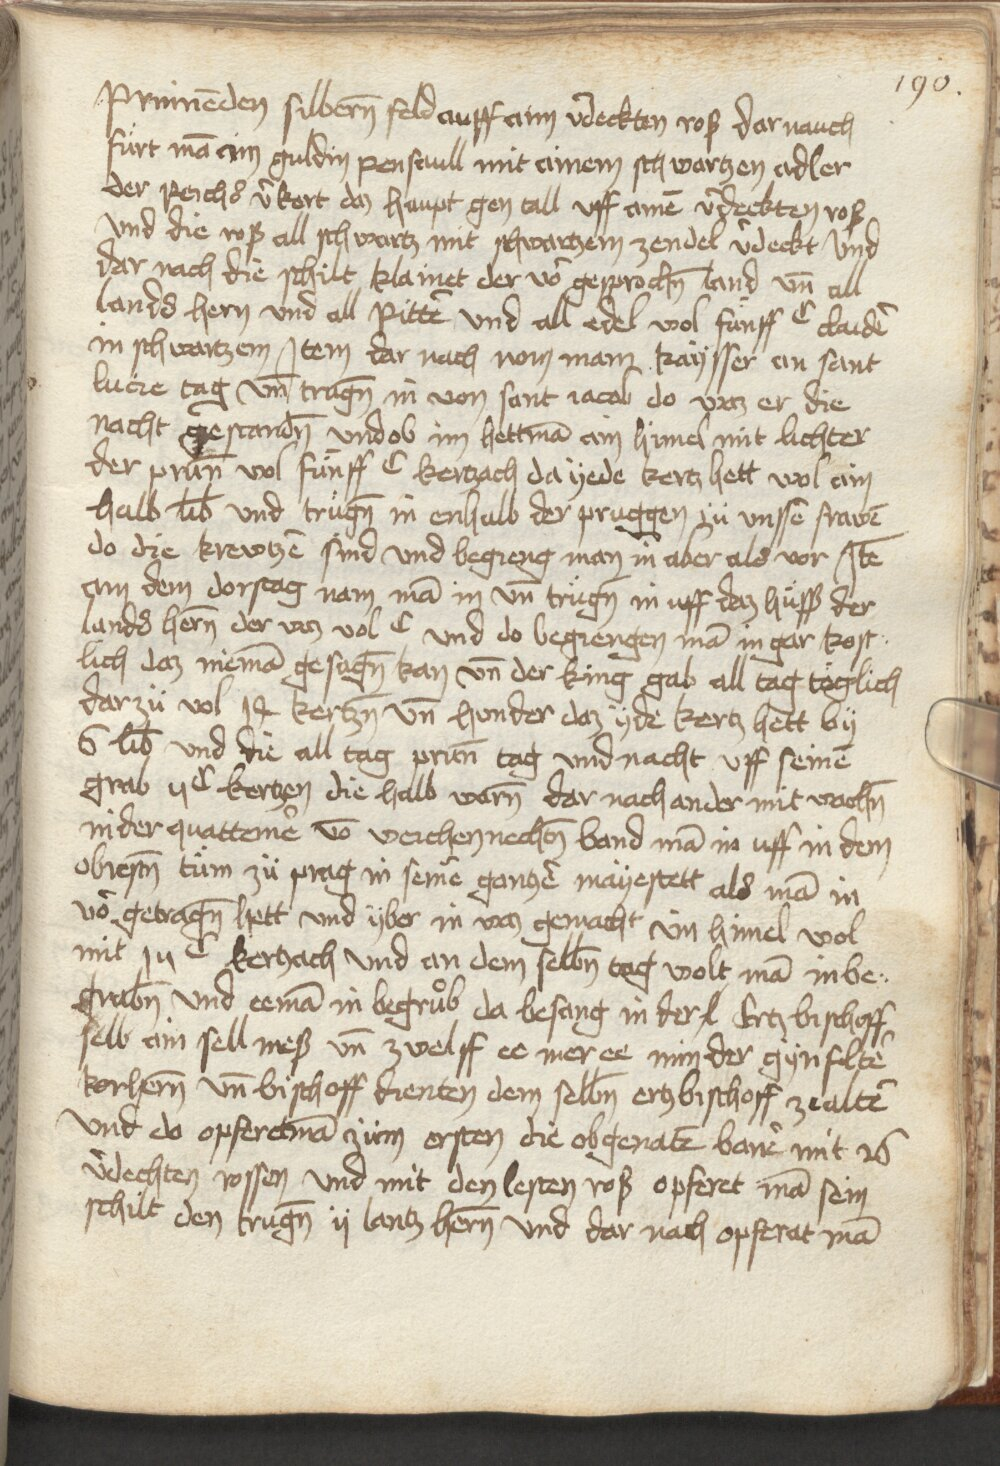 190.
Prinnēden silbern̄ feld auff aim v̄deckten roß dar nauch
fürt mā ain guldin penscaull mit ainem schwartzen adler
der Reichs v̄kert daz haupt gen tall vff ainē v̄deckten roß
vnd die roß all schwartz mit schwartzem zendel v̄deckt vnd
dar nach die schilt klainet der vō gesprochn̄ land vn̄ all
lands hern vnd all Rittē vnd all edel wol fünff C claidē
in schwartzem Item dar nach nom man kaÿsser an sant
lucie tag vn̄ trugn̄ in von sant iacob do waz er die
nacht gestandn̄ vnd ob im hett mā ain himel mit lichter
der prun̄ wol fünff C kertzach da ÿede kertz hett wol ain
halb lib vnd trügn̄ in enhalb der pruggen zü vnssē frawē
do die krewtzē sind vnd begieng man in aber als vor Itē
am dem dorstag nam mā in vn̄ trügn̄ in uff daz huſß der
lands hern̄ der waz wol C vnd do begiengen mā in gar kost
lich daz niemā gesagn̄ kan vn̄ der king gab all tag töglich
darzü wol kertzn̄ vn̄ hunder daz ÿde kertz hett bÿ
6 lib vnd die all tag prun̄ tag vnd nacht vff seinē
grab ij C kertzen die halb warn̄ dar nach ander mit wachn̄
in der quattemē vō weichennechtn̄ band mā in uff in dem
obrestn̄ tüm zü prag in seinē gantzē maÿestett als mā in
vō getragn̄ hett vnd ÿber in waz gemacht im himel wol
mit C kertzach vnd an dem selbn̄ tag wolt mā in be
grabn̄ vnd ee mā in begrůb da besang in der Ertzbischoff
selb ain sell meß vn̄ zwelff ee mer ee minder gÿnfeltē
korhern̄ vn̄ bischoff dienten dem selbn̄ ertzbischoff ze altē
vnd do opferet mā züm ersten die obgenatē banē mit 26
v̄dechten rossen vnd mit den lesten roß opferet mā sein
schilt den trugn̄ ij lantz hern̄ vnd dar nach opferat mā